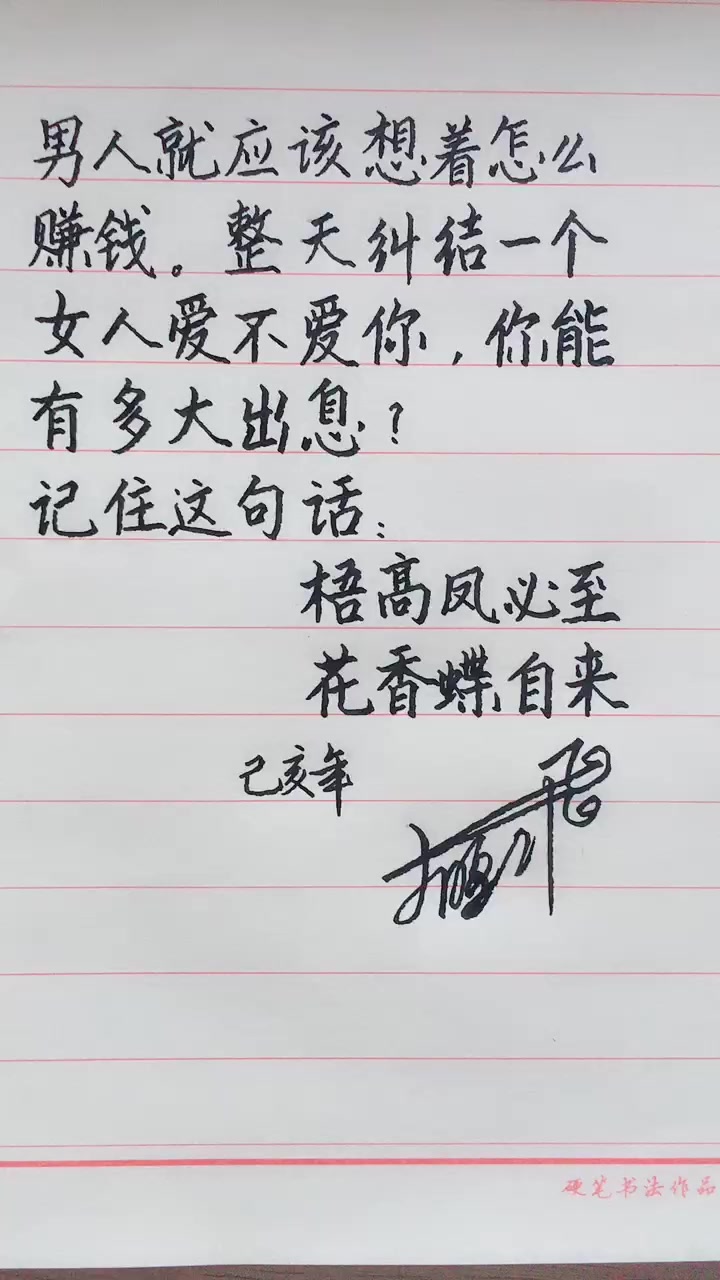 男人就应该想着怎么
赚钱。整天纠结一个
女人爱不爱你，你能
有多大出息？
记住这句话：
梧高凤必至
花香蝶自来
己亥年
硬笔书法作品